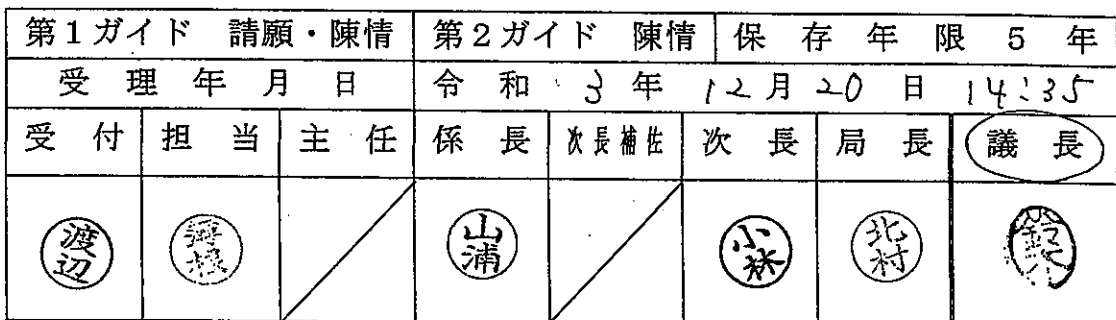 第1ガイド 請願・陳情 第2ガイド 陳情 保存年限 5年
受理年月日 令和 3年 12月 20日 14:35
受付 担当 主任 係長 次長補佐 次長 局長 議長
渡辺 山浦 小林 北村 鈴木